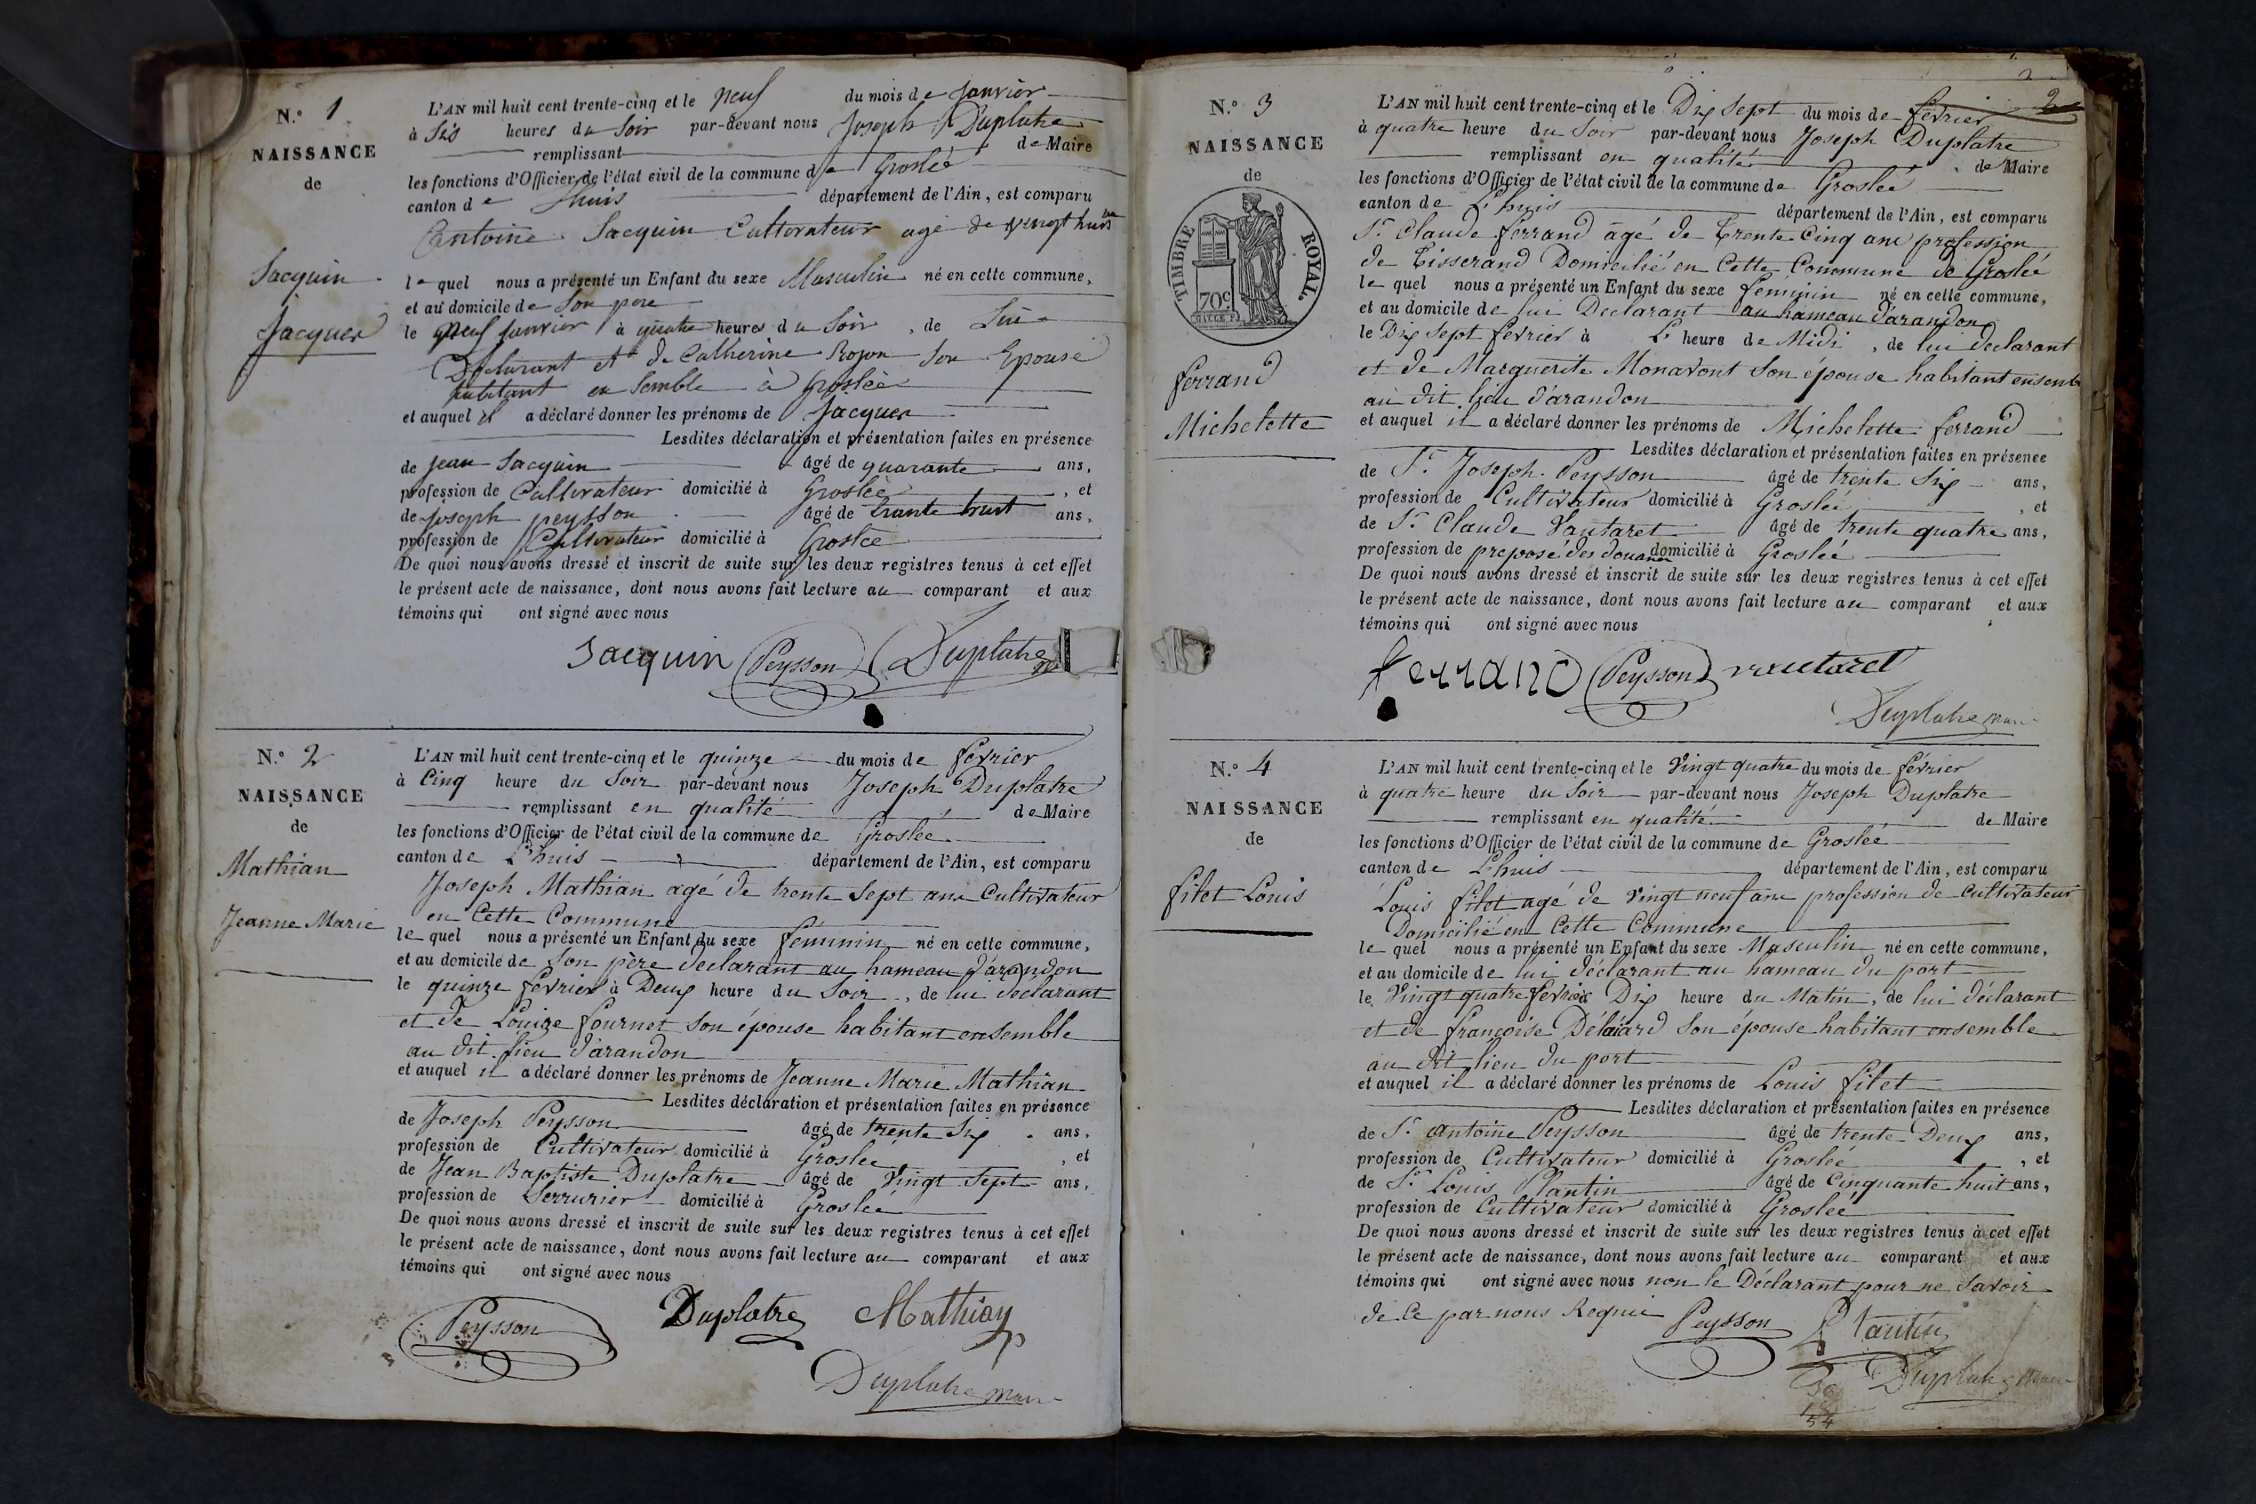 N.° 1
NAISSANCE
de
Jacquin
Jacques
L'AN mil huit cent trente-cinq et le neuf du mois de Janvier
à Sis heures du Soir par-devant nous Joseph Duplatre
remplissant de Maire
les fonctions d'Officier de l'état civil de la commune de Groslée
canton de Lhuis département de l'Ain, est comparu
Antoine Jacquin Cultivateur agé de vingt huit
le quel nous a présenté un Enfant du sexe Masculin né en cette commune,
et au domicile de Son pere
le neuf Janvier à quatre heures du Soir, de Lui
Déclarant et de Catherine Rojon Son Epouse
habitant en Semble à Groslée
et auquel il a déclaré donner les prénoms de Jacques
Lesdites déclaration et présentation faites en présence
de Jean Jacquin âgé de quarante ans,
profession de Cultivateur domicilié à Groslée, et
de Joseph peysson âgé de trante huit ans,
profession de Cultivateur domicilié à Groslée
De quoi nous avons dressé et inscrit de suite sur les deux registres tenus à cet effet
le présent acte de naissance, dont nous avons fait lecture au comparant et aux
témoins qui ont signé avec nous
Jacquin Peysson Duplatre
N.° 2
NAISSANCE
de
Mathian
Jeanne Marie
L'AN mil huit cent trente-cinq et le quinze du mois de fevrier
à Cinq heure du Soir par-devant nous Joseph Duplatre
remplissant en qualité de Maire
les fonctions d'Officier de l'état civil de la commune de Groslée
canton de Lhuis département de l'Ain, est comparu
Joseph Mathian agé de trente Sept ans Cultivateur
en Cette Commune
le quel nous a présenté un Enfant du sexe féminin né en cette commune,
et au domicile de Son père declarant au hameau d'arandon
le quinze fevrier à Deux heure du Soir, de lui declarant
et de Louize fournet Son épouse habitant ensemble
au dit lieu d'arandon
et auquel il a déclaré donner les prénoms de Jeanne Marie Mathian
Lesdites déclaration et présentation faites en présence
de Joseph Peysson âgé de trente Six ans,
profession de Cultivateur domicilié à Groslee, et
de Jean Baptiste Duplatre âgé de Vingt Sept ans,
profession de Serrurier domicilié à Groslée
De quoi nous avons dressé et inscrit de suite sur les deux registres tenus à cet effet
le présent acte de naissance, dont nous avons fait lecture au comparant et aux
témoins qui ont signé avec nous
Peysson Duplatre Mathian
Duplatre maire
2
N.° 3
NAISSANCE
de
TIMBRE ROYAL.
70c
ferrand
Michelette
L'AN mil huit cent trente-cinq et le Dix Sept du mois de fevrier
à quatre heure du Soir par-devant nous Joseph Duplatre
remplissant en qualité de Maire
les fonctions d'Officier de l'état civil de la commune de Groslée
canton de Lhuis département de l'Ain, est comparu
Sr Claude ferrand âgé de Trente Cinq ans profession
de Tisserand Domicilié en Cette Commune de Groslée
le quel nous a présenté un Enfant du sexe feminin né en cette commune,
et au domicile de lui Declarant au hameau d'arandon
le Dix Sept fevrier à L' heure de Midi, de lui declarant
et de Marguerite Monavont Son épouse habitant ensemb
au dit lieu d'arandon
et auquel il a déclaré donner les prénoms de Michelette ferrand
Lesdites déclaration et présentation faites en présence
de Sr Joseph Peysson âgé de trente Six ans,
profession de Cultivateur domicilié à Groslée, et
de Sr Claude Vautaret âgé de trente quatre ans,
profession de preposé des douanes domicilié à Groslée
De quoi nous avons dressé et inscrit de suite sur les deux registres tenus à cet effet
le présent acte de naissance, dont nous avons fait lecture au comparant et aux
témoins qui ont signé avec nous
ferrand Peysson vautaret
Duplatre maire
N.° 4
NAISSANCE
de
filet Louis
L'AN mil huit cent trente-cinq et le Vingt quatre du mois de février
à quatre heure du Soir par-devant nous Joseph Duplatre
remplissant en qualité de Maire
les fonctions d'Officier de l'état civil de la commune de Groslée
canton de Lhuis département de l'Ain, est comparu
Louis filet agé de Vingt neuf ans profession de Cultivateur
Domicilié en Cette Commune
le quel nous a présenté un Enfant du sexe Masculin né en cette commune,
et au domicile de lui déclarant au hameau du port
le Vingt quatre fevrier à Dix heure du Matin, de lui déclarant
et de françoise Son épouse habitant ensemble
au dit lieu du port
et auquel il a déclaré donner les prénoms de Louis filet
Lesdites déclaration et présentation faites en présence
de Sr antoine Peysson âgé de trente Deux ans,
profession de Cultivateur domicilié à Groslée, et
de Sr Louis Plantin âgé de Cinquante huit ans,
profession de Cultivateur domicilié à Groslée
De quoi nous avons dressé et inscrit de suite sur les deux registres tenus à cet effet
le présent acte de naissance, dont nous avons fait lecture au comparant et aux
témoins qui ont signé avec nous non le Déclarant pour ne Savoir
de Ce par nous Requis Peysson Plantin
Duplatre maire